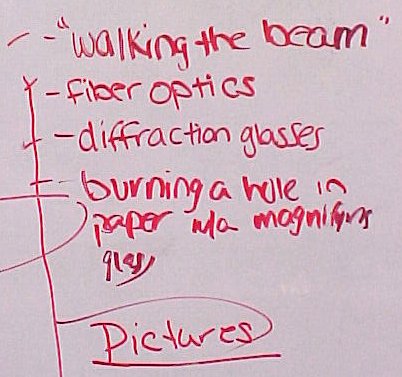 - "walking the beam"
- fiber optics
- diffraction glasses
- burning a hole in
paper w/a magnifying
glass
Pictures